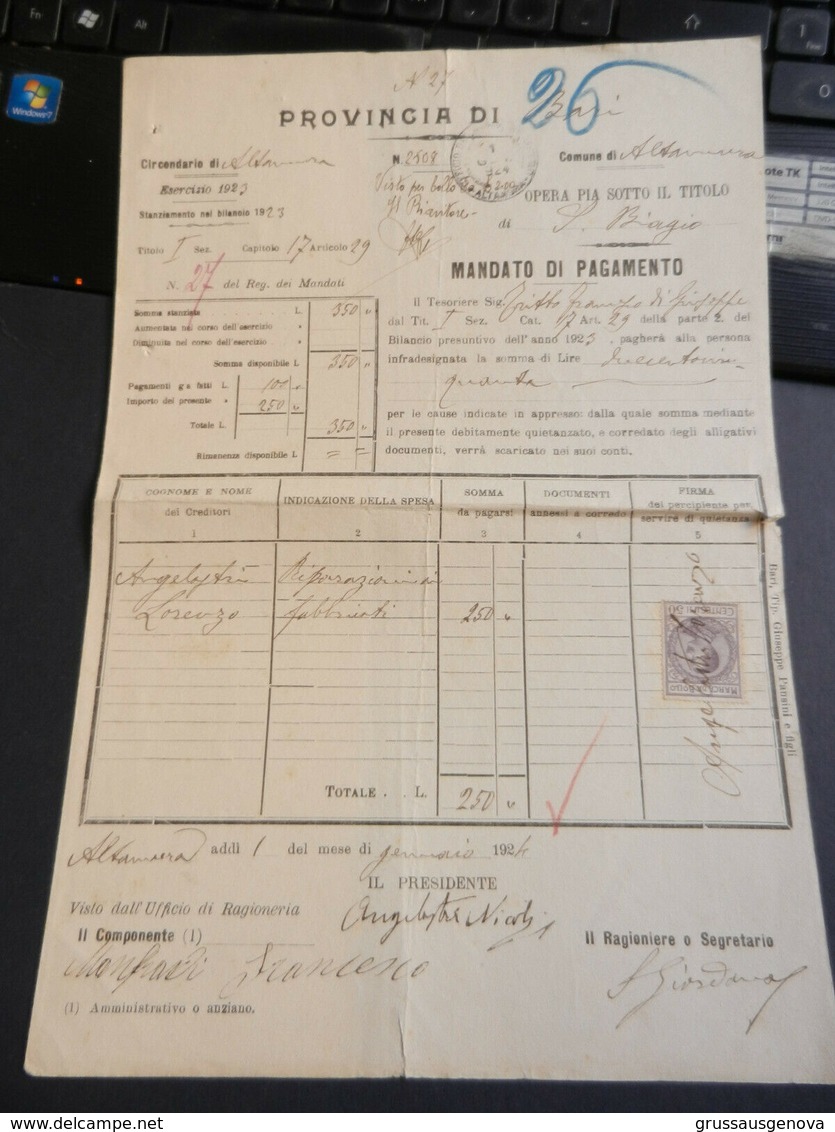 Fn
Alt
Windows 7
N 27
26
PROVINCIA DI Bari
Circondario di Altamura
N. 2508
Comune di Altamura
Esercizio 1923
Visto per bollo L. 2.00
OPERA PIA SOTTO IL TITOLO
Stanziamento nel bilancio 1923
Il Ricevitore
di S. Biagio
Titolo I Sez. Capitolo 17 Articolo 29
N. 27 del Reg. dei Mandati
MANDATO DI PAGAMENTO
Somma stanziata L. 350 "
Aumentata nel corso dell'esercizio "
Diminuita nel corso dell'esercizio "
Somma disponibile L. 350 "
Pagamenti già fatti L. 100 "
Importo del presente " 250 "
Totale L. 350 "
Rimanenza disponibile L. = =
Il Tesoriere Sig. di Giuseppe
dal Tit. I Sez. Cat. 17 Art. 29 della parte 2. del
Bilancio presuntivo dell'anno 1923, pagherà alla persona
infradesignata la somma di Lire duecentocin
quanta
per le cause indicate in appresso: dalla quale somma mediante
il presente debitamente quietanzato, e corredato degli alligativi
documenti, verrà scaricato nei suoi conti.
COGNOME E NOME dei Creditori 1
INDICAZIONE DELLA SPESA 2
SOMMA da pagarsi 3
DOCUMENTI annessi a corredo 4
FIRMA del percipiente per servire di quietanza 5
Angelastri Riparazioni ai
Lorenzo fabbricati 250 "
CENTESIMI 50
MARCA DA BOLLO
Angelastri Lorenzo
Bari, Tip. Giuseppe Pansini e figli
TOTALE . . . L. 250 "
Altamura addì 1 del mese di gennaio 1924
IL PRESIDENTE
Visto dall'Ufficio di Ragioneria
Angelastri Nicola
Il Componente (1)
Il Ragioniere o Segretario
Francesco
Giordano
(1) Amministrativo o anziano.
grussausgenova